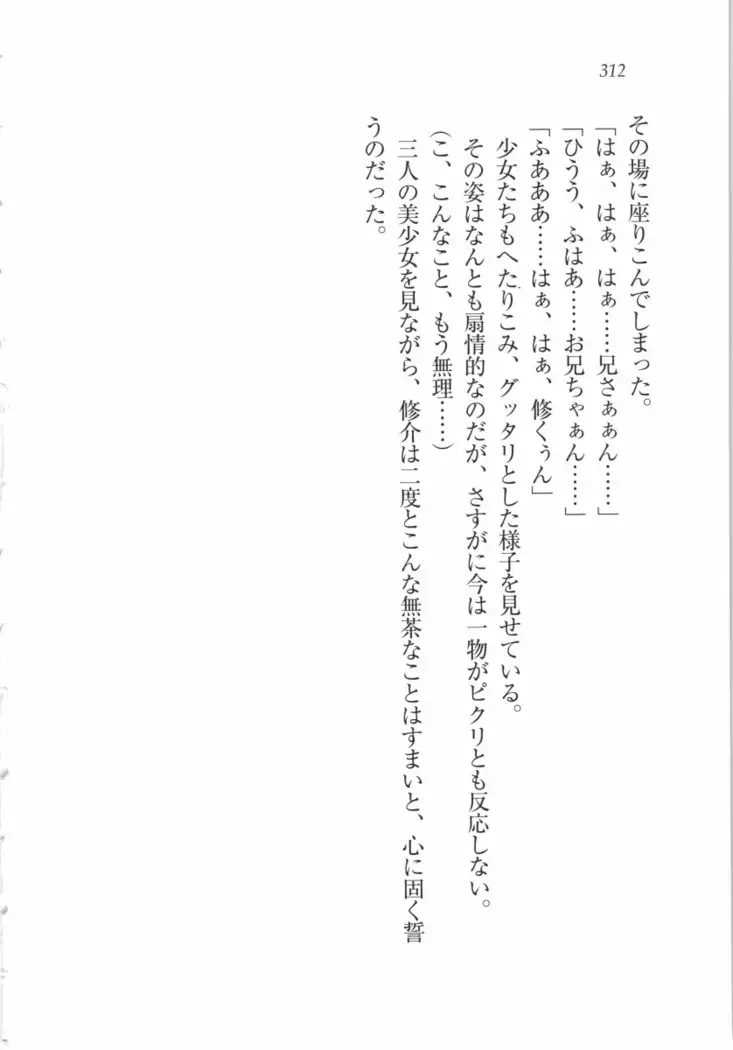 312
その場に座りこんでしまった。
「はぁ、はぁ、はぁ……兄さぁぁん……」
「ひうう、ふはあ……お兄ちゃぁん……」
「ふあああ……はぁ、はぁ、修くぅん」
少女たちもへたりこみ、グッタリとした様子を見せている。
その姿はなんとも扇情的なのだが、さすがに今は一物がピクリとも反応しない。
(こ、こんなこと、もう無理……)
三人の美少女を見ながら、修介は二度とこんな無茶なことはすまいと、心に固く誓
うのだった。